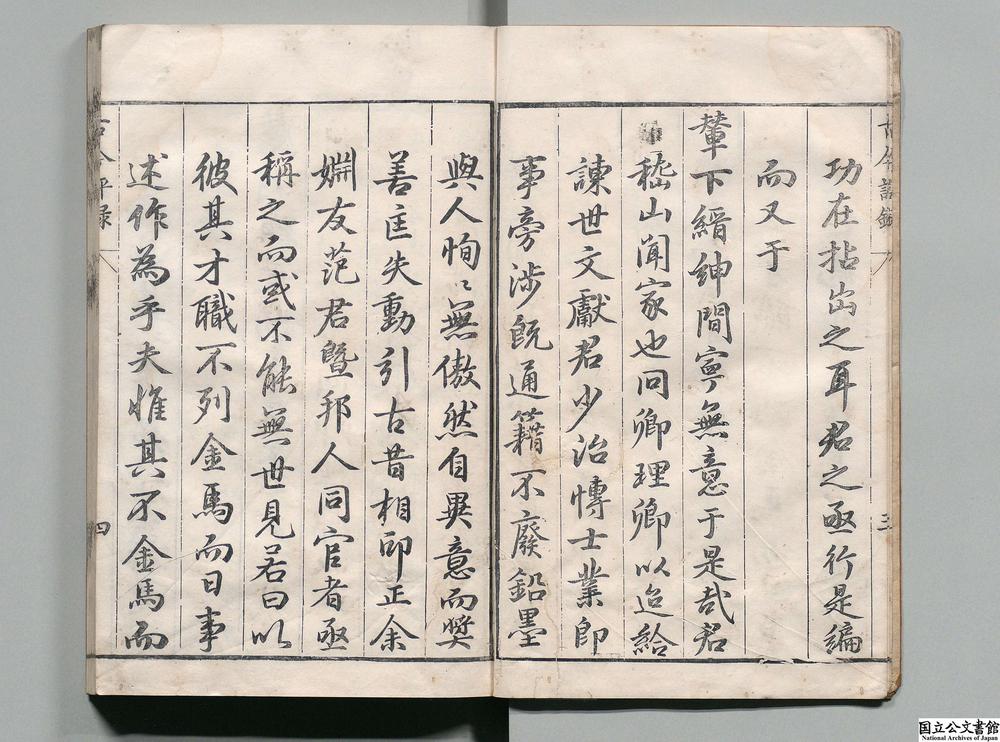 功在拈出之耳君之亟行是編
而又于
輦下縉紳間寧無意于是哉君
嵇山聞家也同卿理卿以迨給
諫世文獻君少治博士業即
事旁涉既通籍不廢鉛墨
與人恂〻無傲然自異意而獎
善匡失動引古昔相印正余
婣友范君暨邦人同官者亟
稱之而或不能無世見若曰以
彼其才職不列金馬而日事
述作為乎夫惟其不金馬而
三
四
国立公文書館
National Archives of Japan